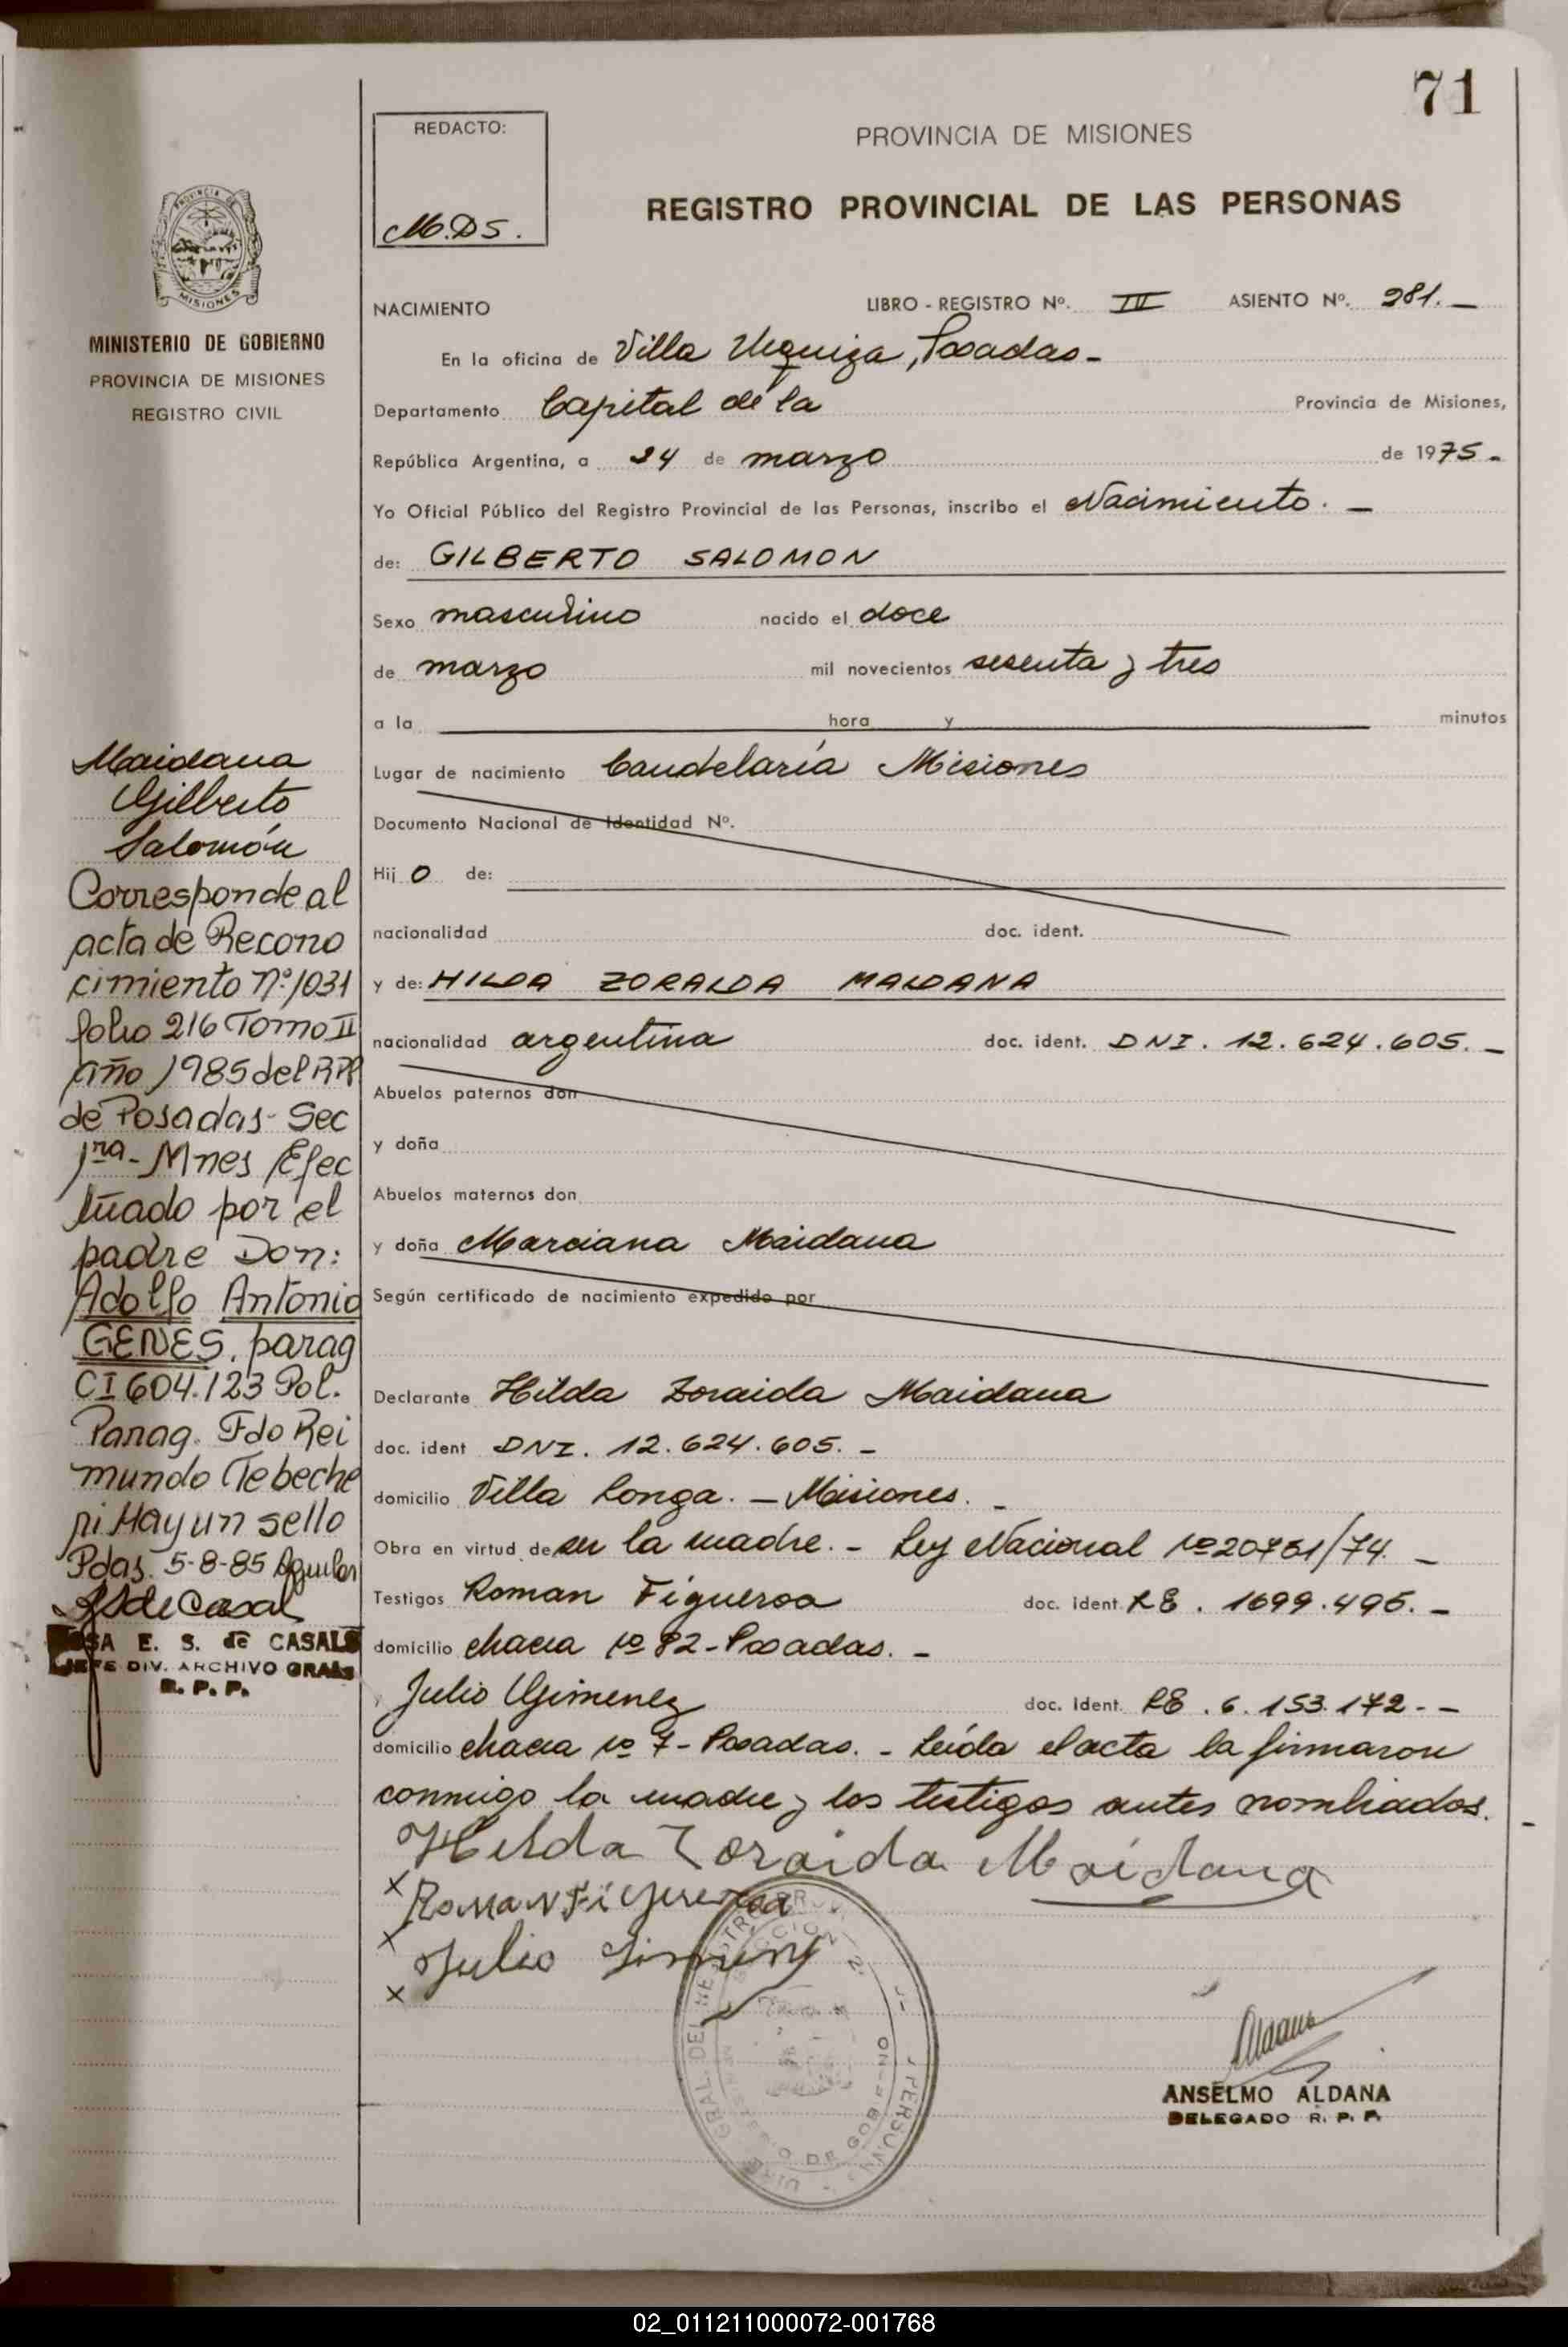 71
REDACTO:
M.DS.
PROVINCIA DE MISIONES
REGISTRO PROVINCIAL DE LAS PERSONAS
MISIONES
MINISTERIO DE GOBIERNO
PROVINCIA DE MISIONES
REGISTRO CIVIL
NACIMIENTO LIBRO - REGISTRO Nº. III ASIENTO Nº. 281.—
En la oficina de Villa Urquiza, Posadas-
Departamento Capital de la Provincia de Misiones,
República Argentina, a 24 de marzo de 1975-
Yo Oficial Público del Registro Provincial de las Personas, inscribo el Nacimiento. —
de: GILBERTO SALOMON
Sexo masculino nacido el doce
de marzo mil novecientos sesenta y tres
a la hora y minutos
Lugar de nacimiento Candelaria Misiones
Documento Nacional de Identidad Nº.
Hij o de:
nacionalidad doc. ident.
y de: HILDA ZORAIDA MAIDANA
nacionalidad argentina doc. ident. DNI. 12.624.605. —
Abuelos paternos don
y doña
Abuelos maternos don
y doña Marciana Maidana
Según certificado de nacimiento expedido por
Declarante Hilda Zoraida Maidana
doc. ident DNI. 12.624.605. -
domicilio Villa Longa. — Misiones. -
Obra en virtud de ser la madre. - Ley Nacional nº 20751/74. —
Testigos Roman Figueroa doc. ident. LE. 1699.495. —
domicilio chacra nº 82-Posadas. -
y Julio Gimenez doc. Ident. LE. 6.153.172. - -
domicilio chacra nº 7- Posadas. - Leída el acta la firmaron
conmigo la madre y los testigos antes nombrados.
Hilda Zoraida Maidana
x Roman Figueroa
x Julio Gimenez
x
ANSELMO ALDANA
DELEGADO R. P. P.
Maidana
Gilberto
Salomón
Corresponde al
acta de Recono
cimiento Nº:1031
folio 216 Tomo II
año 1985 del RPP
de Posadas- Sec
1ra- Mnes Efec
tuado por el
padre Don:
Adolfo Antonio
GENES, parag
CI 604.123 Pol.
Parag. Fdo Rei
mundo Tebeche
ri Hay un sello
Pdas. 5-8-85 Aguilar
de Casals
E. S. de CASALS
JEFE DIV. ARCHIVO GRAL
R. P. P.
02_011211000072-001768